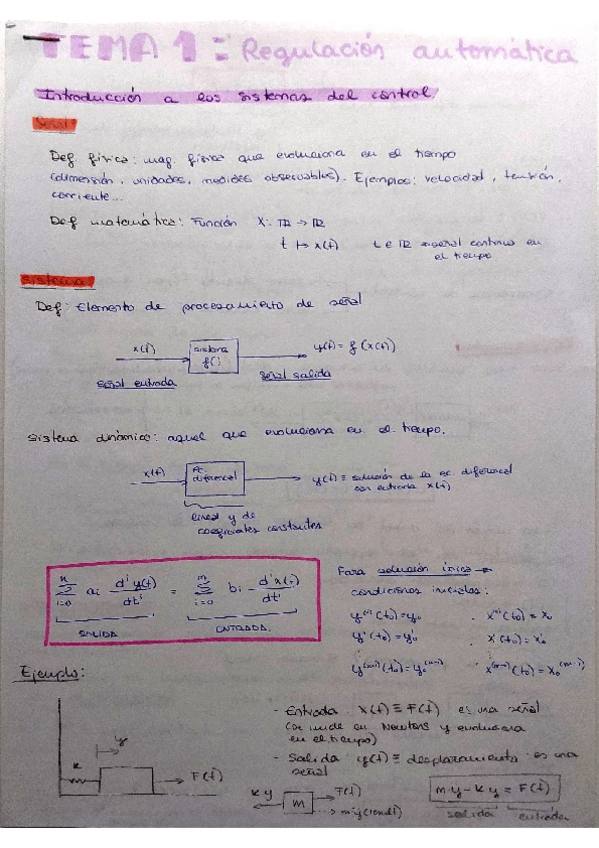 TEMA 1: Regulación automática
Introducción a los sistemas del control.
Señal:
Def física: mag. física que evoluciona en el tiempo
(dimensión, unidades, medidas observables). Ejemplos: velocidad, tensión,
corriente...
Def matemática: Función X: ℝ → ℝ
t ↦ x(t) t ∈ ℝ señal continua en
el tiempo
Sistema:
Def: Elemento de procesamiento de señal
x(t) sistema f() y(t) = f(x(t))
señal entrada señal salida
Sistema dinámico: aquel que evoluciona en el tiempo.
x(t) Ec. diferencial y(t) ≡ solución de la ec. diferencial
con entrada x(t)
lineal y de
coeficientes constantes
n∑i=0 ai dⁱy(t)/dtⁱ = m∑i=0 bi dⁱx(t)/dtⁱ
SALIDA ENTRADA
Para solución única →
condiciones iniciales:
y(t₀) = y₀ . x(t₀) = x₀
y'(t₀) = y'₀ . x'(t₀) = x'₀
y⁽ⁿ⁻¹⁾(t₀) = y₀⁽ⁿ⁻¹⁾ x⁽ᵐ⁻¹⁾(t₀) = x₀⁽ᵐ⁻¹⁾
Ejemplo:
y
k
F(t)
- Entrada x(t) ≡ F(t) es una señal
(se mide en Newtons y evoluciona
en el tiempo)
- Salida y(t) ≡ desplazamiento es una
señal
ky m F(t)
m·y - ky = F(t)
salida entrada